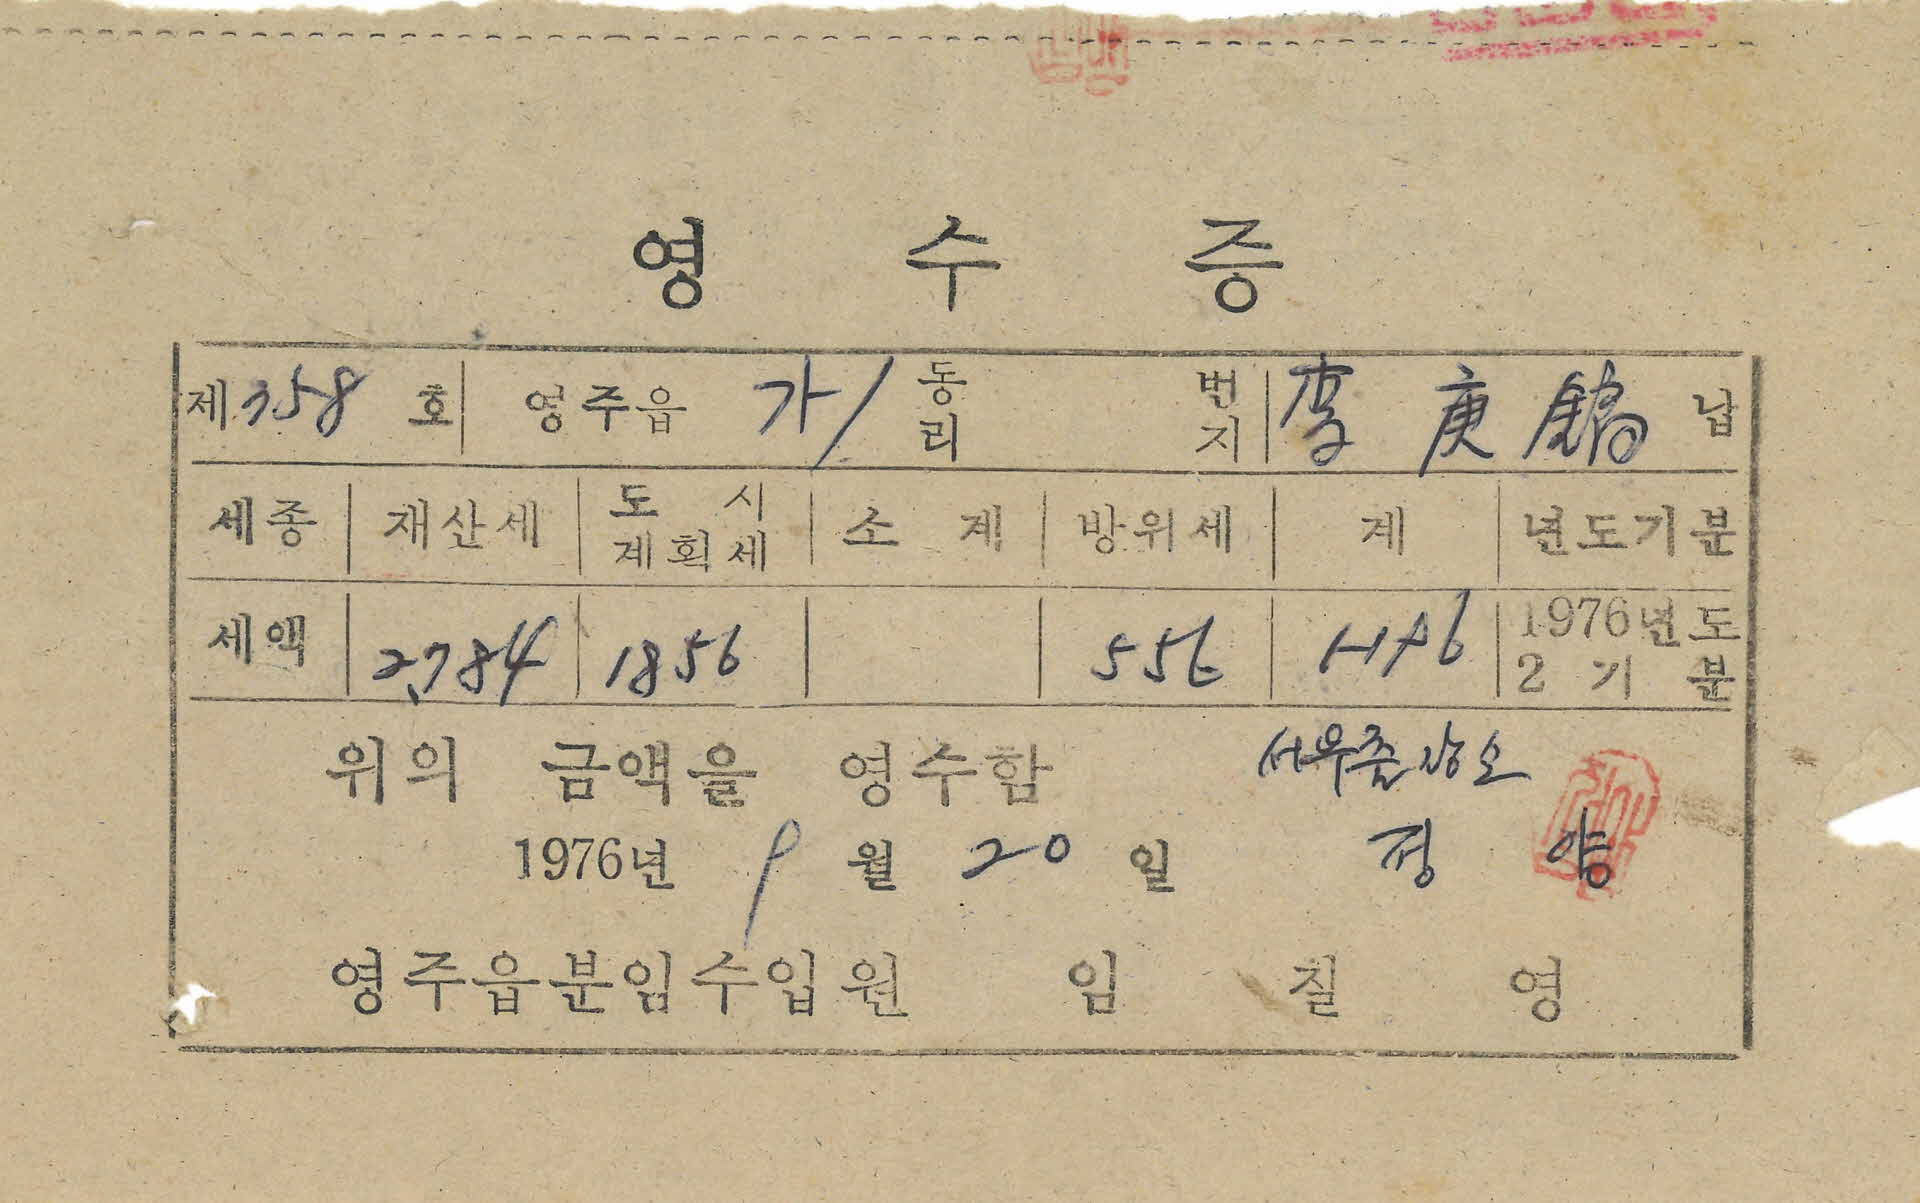 영 수 증
제 358 호 영주읍 가 1 동리 번지 李庚鎬 납
세종 재산세 도시계획세 소계 방위세 계 년도기분
세액 2,784 1856 556 1976년도 2기분
위의 금액을 영수함
1976년 9월 20일 정
영주읍분임수입원 임칠영